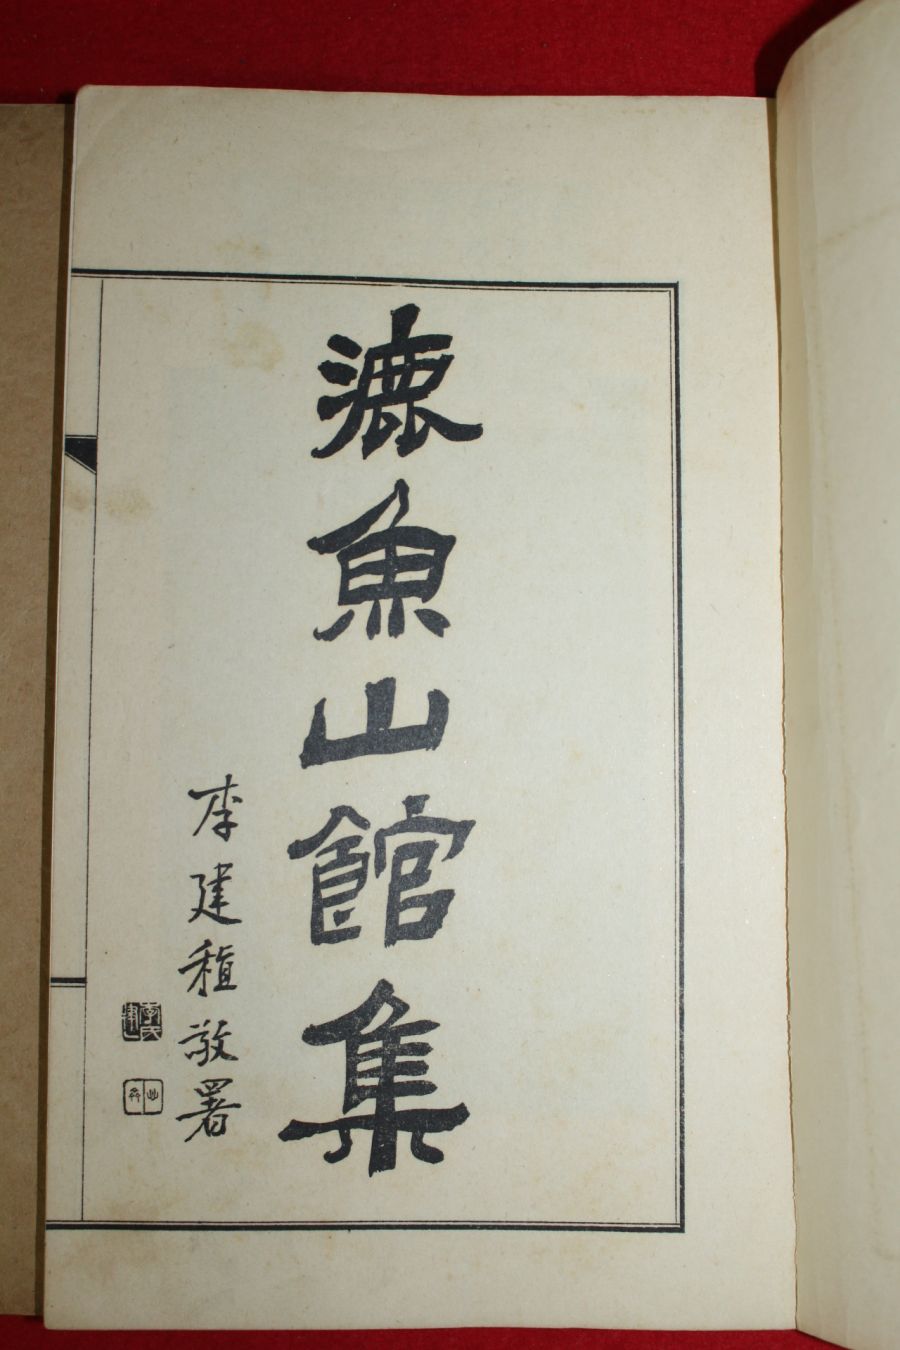 漉魚山館集
李建稙敬署